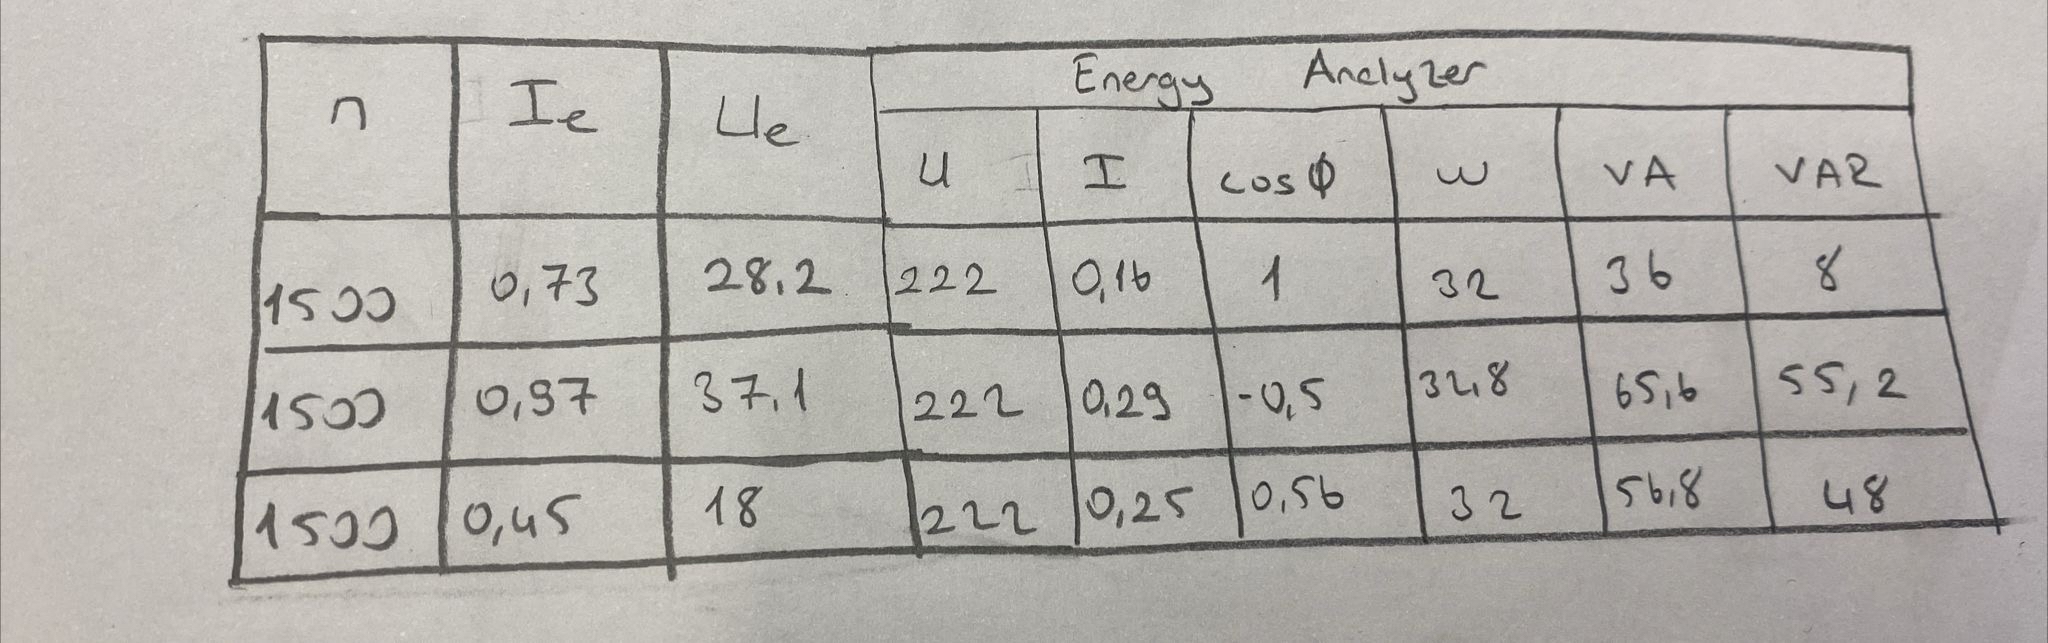 Energy Analyzer
n Ie Ue U I cosϕ W VA VAR
1500 0,73 28,2 222 0,16 1 32 36 8
1500 0,97 37,1 222 0,29 -0,5 32,8 65,6 55,2
1500 0,45 18 222 0,25 0,56 32 56,8 48